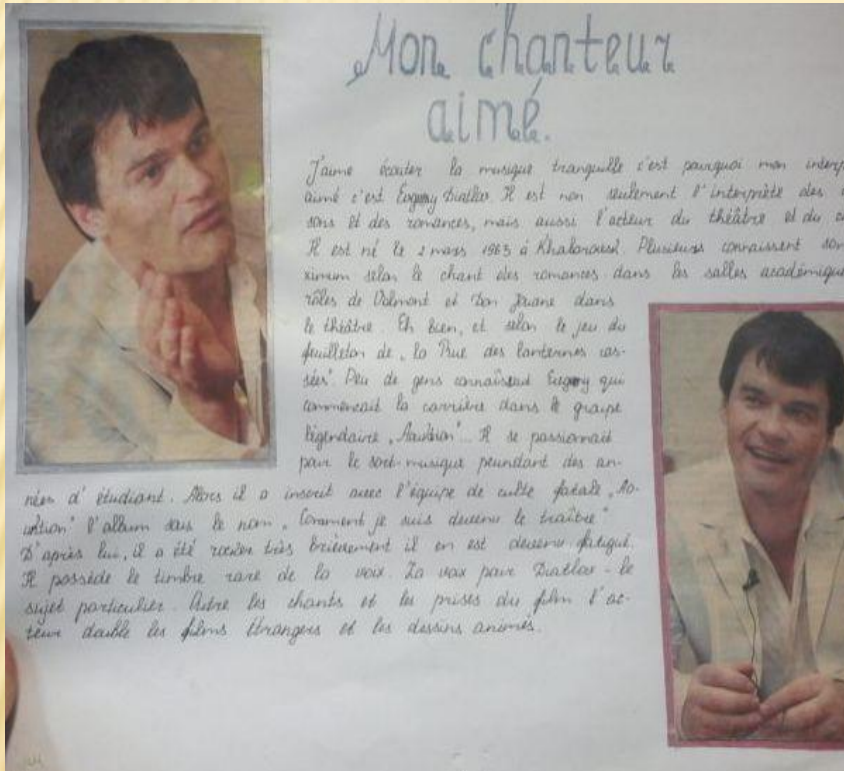 Mon chanteur
aimé.
J'aime écouter la musique tranquille c'est pourquoi mon interp
aimé c'est Evgeny Diatlov Il est non seulement l'interprète des
sons et des romances, mais aussi l'acteur du théâtre et du
Il est né le 2 mars 1963 à Khabarovsk. Plusieurs connaissent
ximum selon le chant des romances dans les salles académique
rôles de Valmont et Don Jouane dans
le théâtre. Eh bien, et selon le jeu du
feuilleton de „la Rue des lanternes cas-
sées" Peu de gens connaissent Evgeny qui
commencait la carrière dans le groupe
légendaire „Auktion"... Il se passionait
pour le musique peundant des an-
nées d'étudiant. Alors il a inscrit avec l'équipe de culte fatale „Au-
ktion" l'album sous le nom „Comment je suis devenu le traître"
D'après lui, il a été rocker très brièvement il en est devenu fatigué.
Il possède le timbre rare de la voix. La voix pour Diatlov - le
sujet particulier. Outre les chants et les prises du film l'ac-
teur double les films étrangers et les dessins animés.